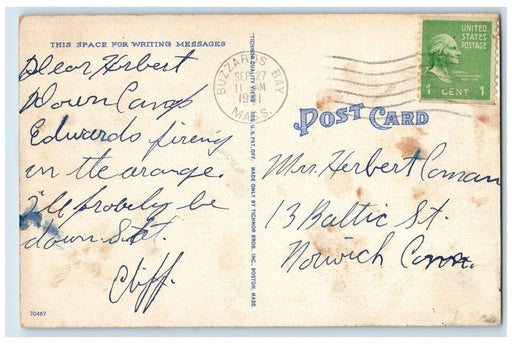 THIS SPACE FOR WRITING MESSAGES
Dear Herbert
Down Camp
Edwards fireing
on the arange.
I'll probely be
down Sat.
Cliff.
70487
TICHNOR QUALITY VIEWS REG. U.S. PAT. OFF. MADE ONLY BY TICHNOR BROS., INC. BOSTON, MASS.
BUZZARDS BAY
SEP 27
11 AM
1941
MASS.
UNITED
STATES
POSTAGE
1 CENT 1
POST CARD
Mrs. Herbert Coman
13 Baltic St.
Norwich Conn.